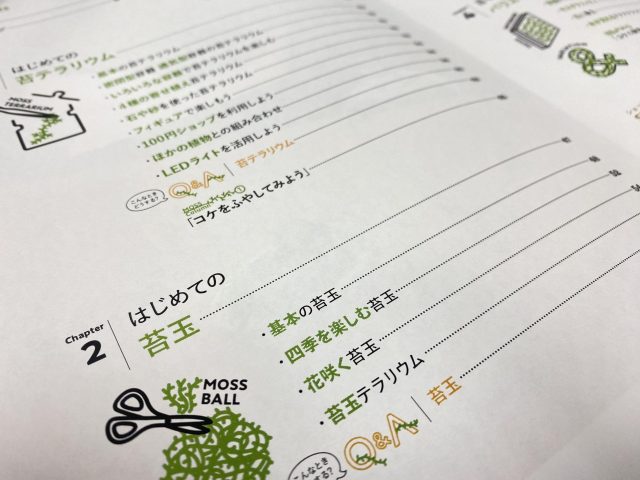 はじめての
苔テラリウム
MOSS
TERRARIUM
・基本の苔テラリウム
・いろいろな容器で苔テラリウムを楽しむ
・4種の寄せ植え苔テラリウム
・石や砂を使った苔テラリウム
・フィギュアで楽しもう
・100円ショップを利用しよう
・ほかの植物との組み合わせ
・LEDライトを活用しよう
こんなとき
どうする?
Q&A
苔テラリウム
MOSS
Column
①
「コケをふやしてみよう」
Chapter
2
はじめての
苔玉
・基本の苔玉
・四季を楽しむ苔玉
・花咲く苔玉
・苔玉テラリウム
MOSS
BALL
こんなとき
Q&A
苔玉